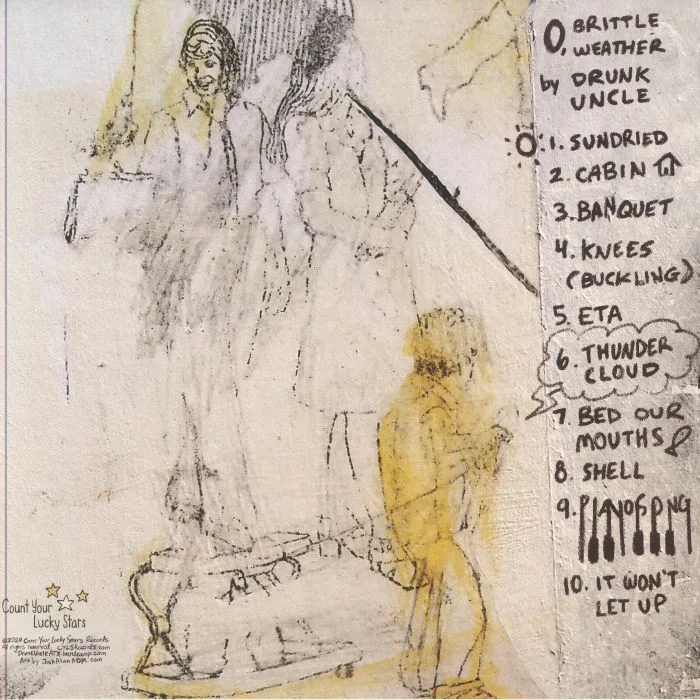 0. BRITTLE
WEATHER
by DRUNK
UNCLE
1. SUNDRIED
2. CABIN
3. BANQUET
4. KNEES
(BUCKLING)
5. ETA
6. THUNDER
CLOUD
7. BED OUR
MOUTHS
8. SHELL
9. PIANOSONG
10. IT WON'T
LET UP
Count Your
Lucky Stars
©2024 Count Your Lucky Stars Records
All rights reserved. CYLSRecords.com
DrunkUncleATX.bandcamp.com
Art by JoshAlanADM.com